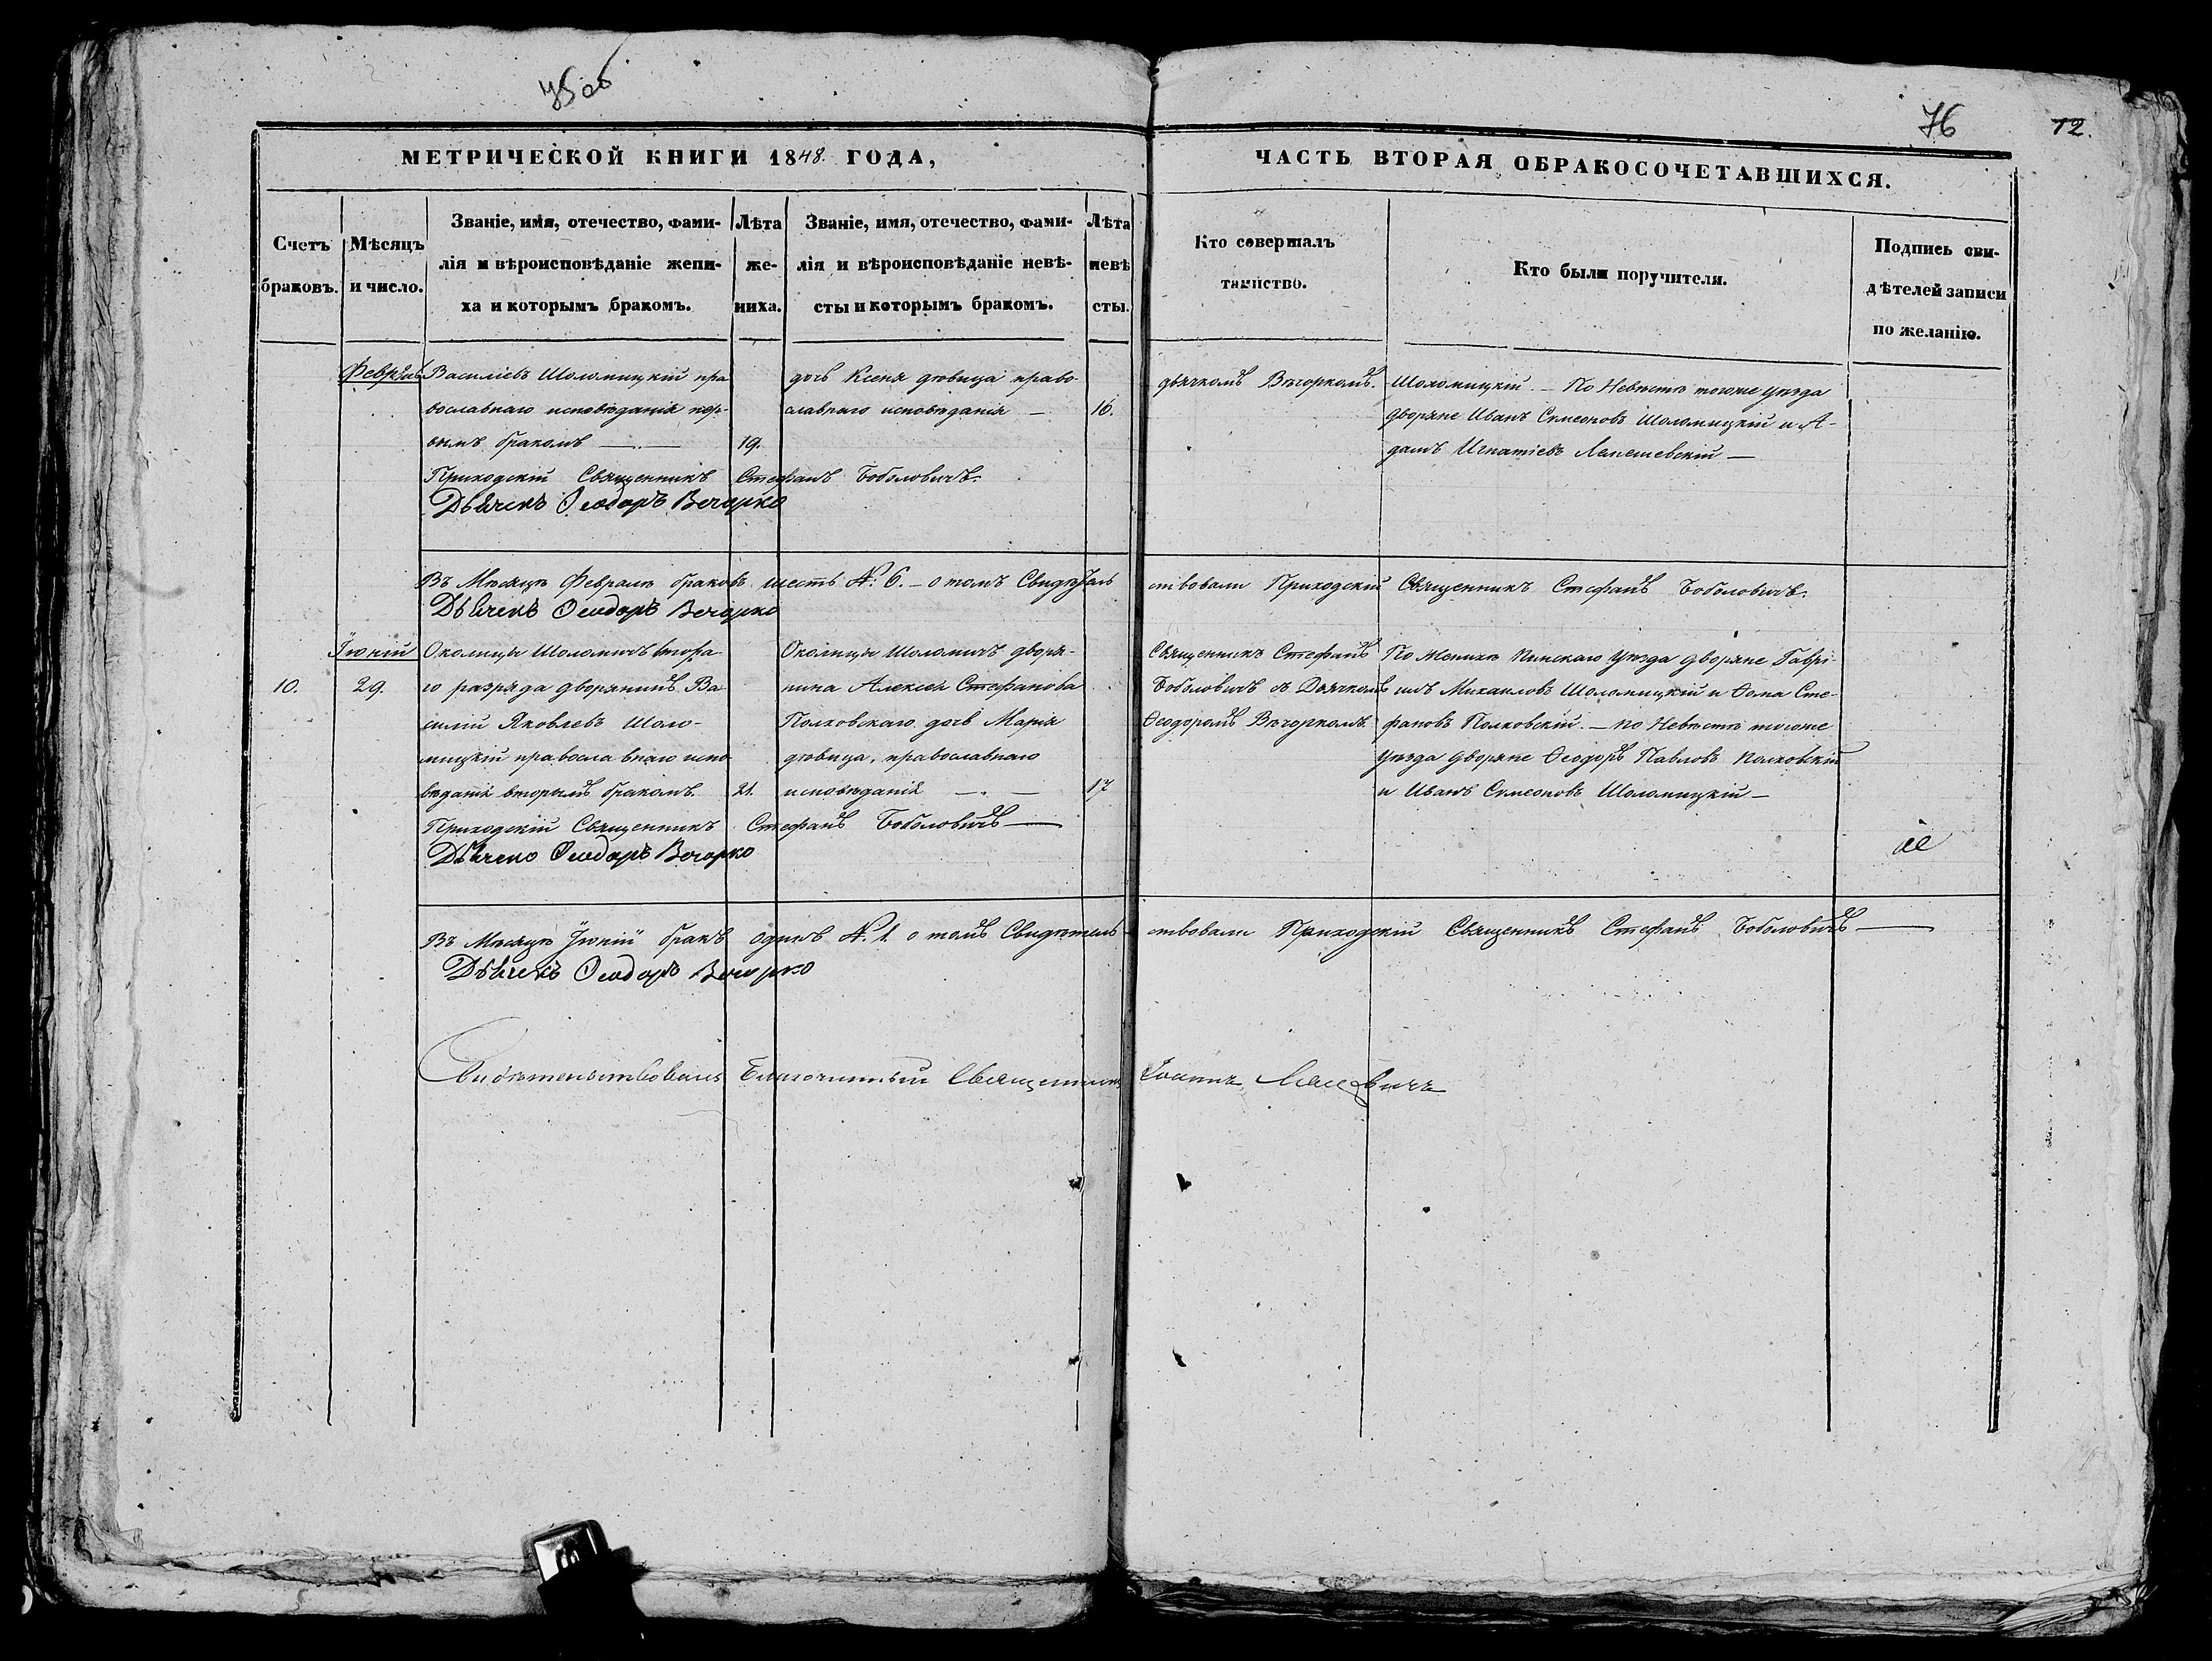 75 об
76
12.
МЕТРИЧЕСКОЙ КНИГИ 1848. ГОДА,
ЧАСТЬ ВТОРАЯ ОБРАКОСОЧЕТАВШИХСЯ.
Счетъ браковъ.
Мѣсяцъ и число.
Званіе, имя, отечество, фами-
лія и вѣроисповѣданіе жени-
ха и которымъ бракомъ.
Лѣта
же-
ниха.
Званіе, имя, отечество, фами-
лія и вѣроисповѣданіе невѣ-
сты и которымъ бракомъ.
Лѣта
невѣ
сты.
Кто совершалъ
таинство.
Кто были поручители.
Подпись сви-
дѣтелей записи
по желанію.
Февраль
Василіевъ Шоломицкій пра
вославнаго исповѣданія пер-
вымъ бракомъ —
19.
дочь Ксенія дѣвица право-
славнаго исповѣданія —
16.
дьячкомъ Вѣчоркомъ.
Шоломицкій. — По Невѣстѣ тогоже уѣзда
дворяне Иванъ Симеоновъ Шоломицкій и А-
дамъ Игнатіевъ Лемешевскій —
Приходскій Священникъ Стефанъ Боболовичъ.
Дьячекъ Ѳеодоръ Вечорко
Въ Мѣсяцѣ Февралѣ браковъ шесть №: 6. — о томъ Свидѣтель
ствовали Приходскій Священникъ Стефанъ Боболовичъ.
Дьячекъ Ѳеодоръ Вечорко
Іюній
10.
29.
Околицы Шоломичъ втора-
го разряда дворянинъ Ва
силій Яковлевъ Шоло-
мицкій православнаго испо
вѣданія вторымъ бракомъ.
21.
Околицы Шоломичъ дворя-
нина Алексѣя Стефанова
Полховскаго дочь Марія
дѣвица, православнаго
исповѣданія —
17
Священникъ Стефанъ
Боболовичъ съ Дьячкомъ
Ѳеодоромъ Вѣчоркомъ.
По Женихѣ Пинскаго Уѣзда дворяне Гаврі-
илъ Михаиловъ Шоломицкій и Ѳома Сте-
фановъ Полховскій. — по Невѣстѣ тогоже
уѣзда дворяне Ѳеодоръ Павловъ Полховскій
и Иванъ Симеоновъ Шоломицкій —
Приходскій Священникъ Стефанъ Боболовичъ —
Дьячекъ Ѳеодоръ Вечорко
Въ Мѣсяцѣ Іюніи бракъ одинъ №. 1. о томъ Свидѣтель-
ствовали Приходскій Священникъ Стефанъ Боболовичъ —
Дьячекъ Ѳеодоръ Вечорко
Свидѣтельствовалъ Благочинный Священникъ Іоаннъ